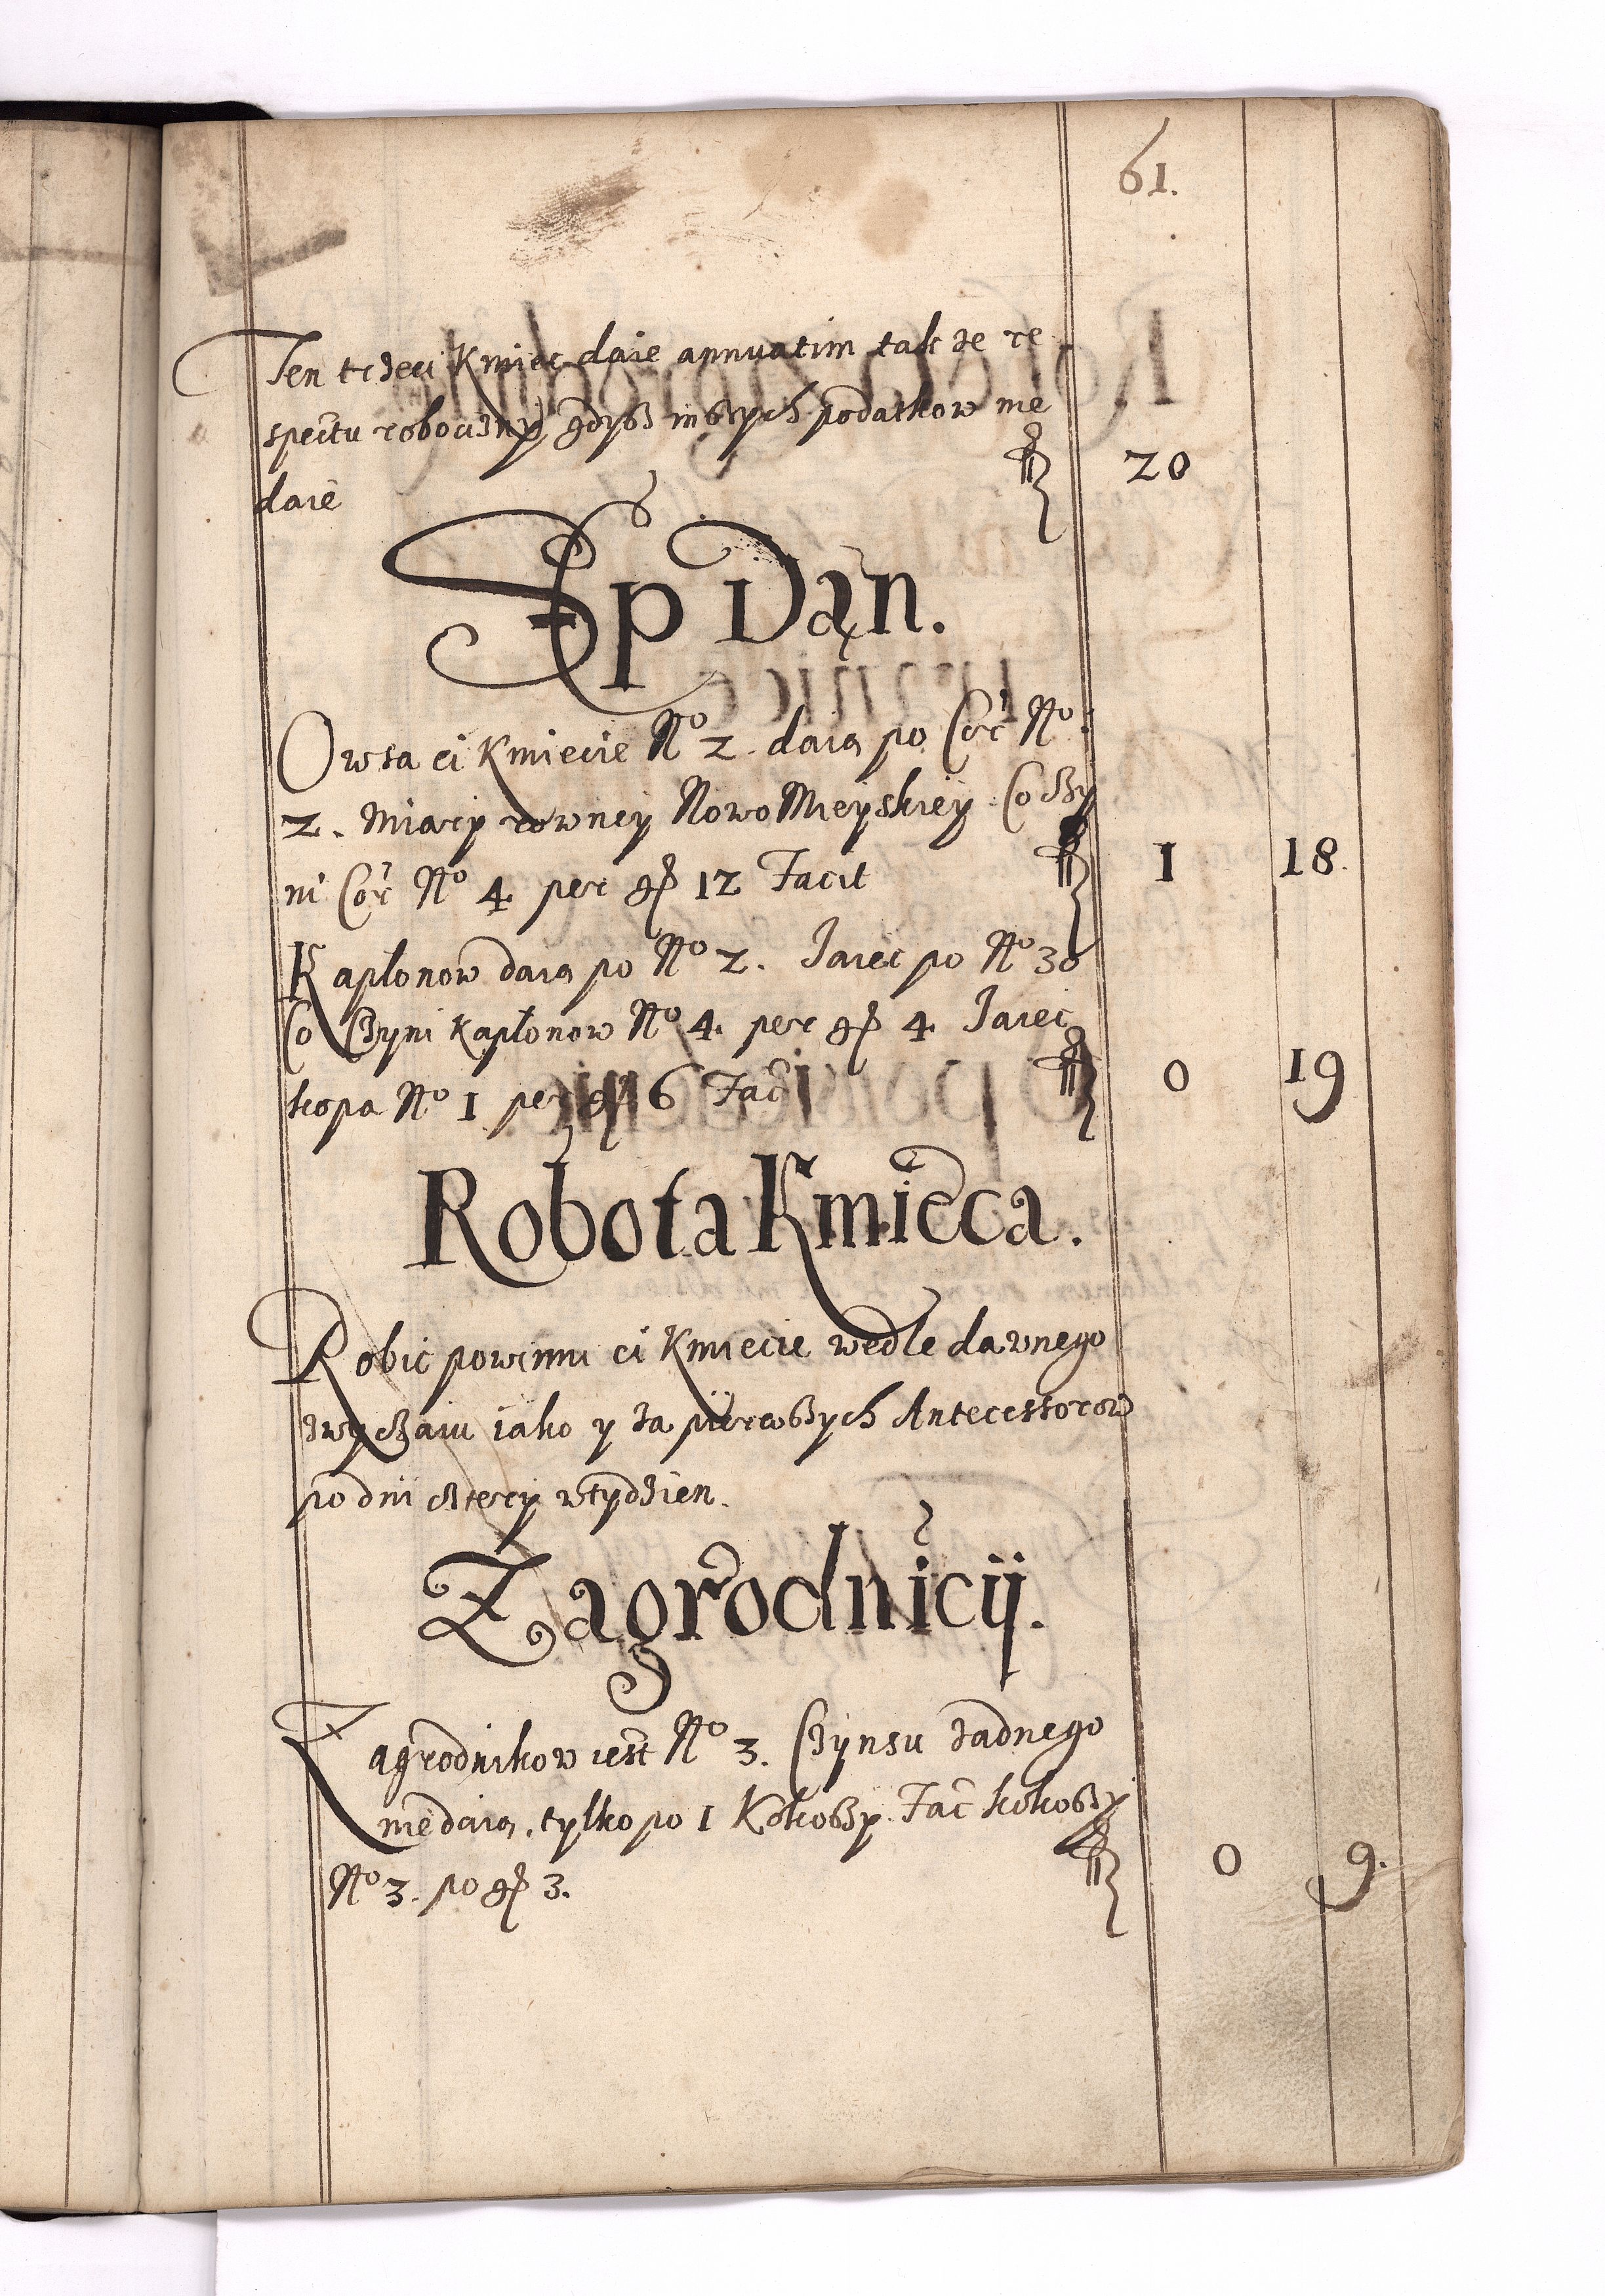 61.
Ten trzeci Kmiec daie annuatim tak ze re
spectu robocizny gdysz inszych podatkow nie
daie fl 20
Sep Dan.
Owsa ci Kmiecie No 2. daią po Cor No
2. Miary rowney NowoMieyskiey Co czy
ni Cor No 4. per gr 12 Facit fl 1 18.
Kapłonow daią po No 2. Jaiec po No 30
Co Czyni kapłonow No 4. per gr 4. Jaiec
kopa No 1. per gr 6 Fac fl 0 19
Robota Kmieca.
Robic powinni ci Kmiecie wedle dawnego
zwyczaiu iako y za pierwszych Antecessorow
po dni cztery w tydzien.
Zagrodnicy.
Zagrodnikow iest No 3. Czynsu zadnego
nie daią, tylko po 1 Kokoszy. Fac kokoszy
No 3. po gr 3. fl 0 9.